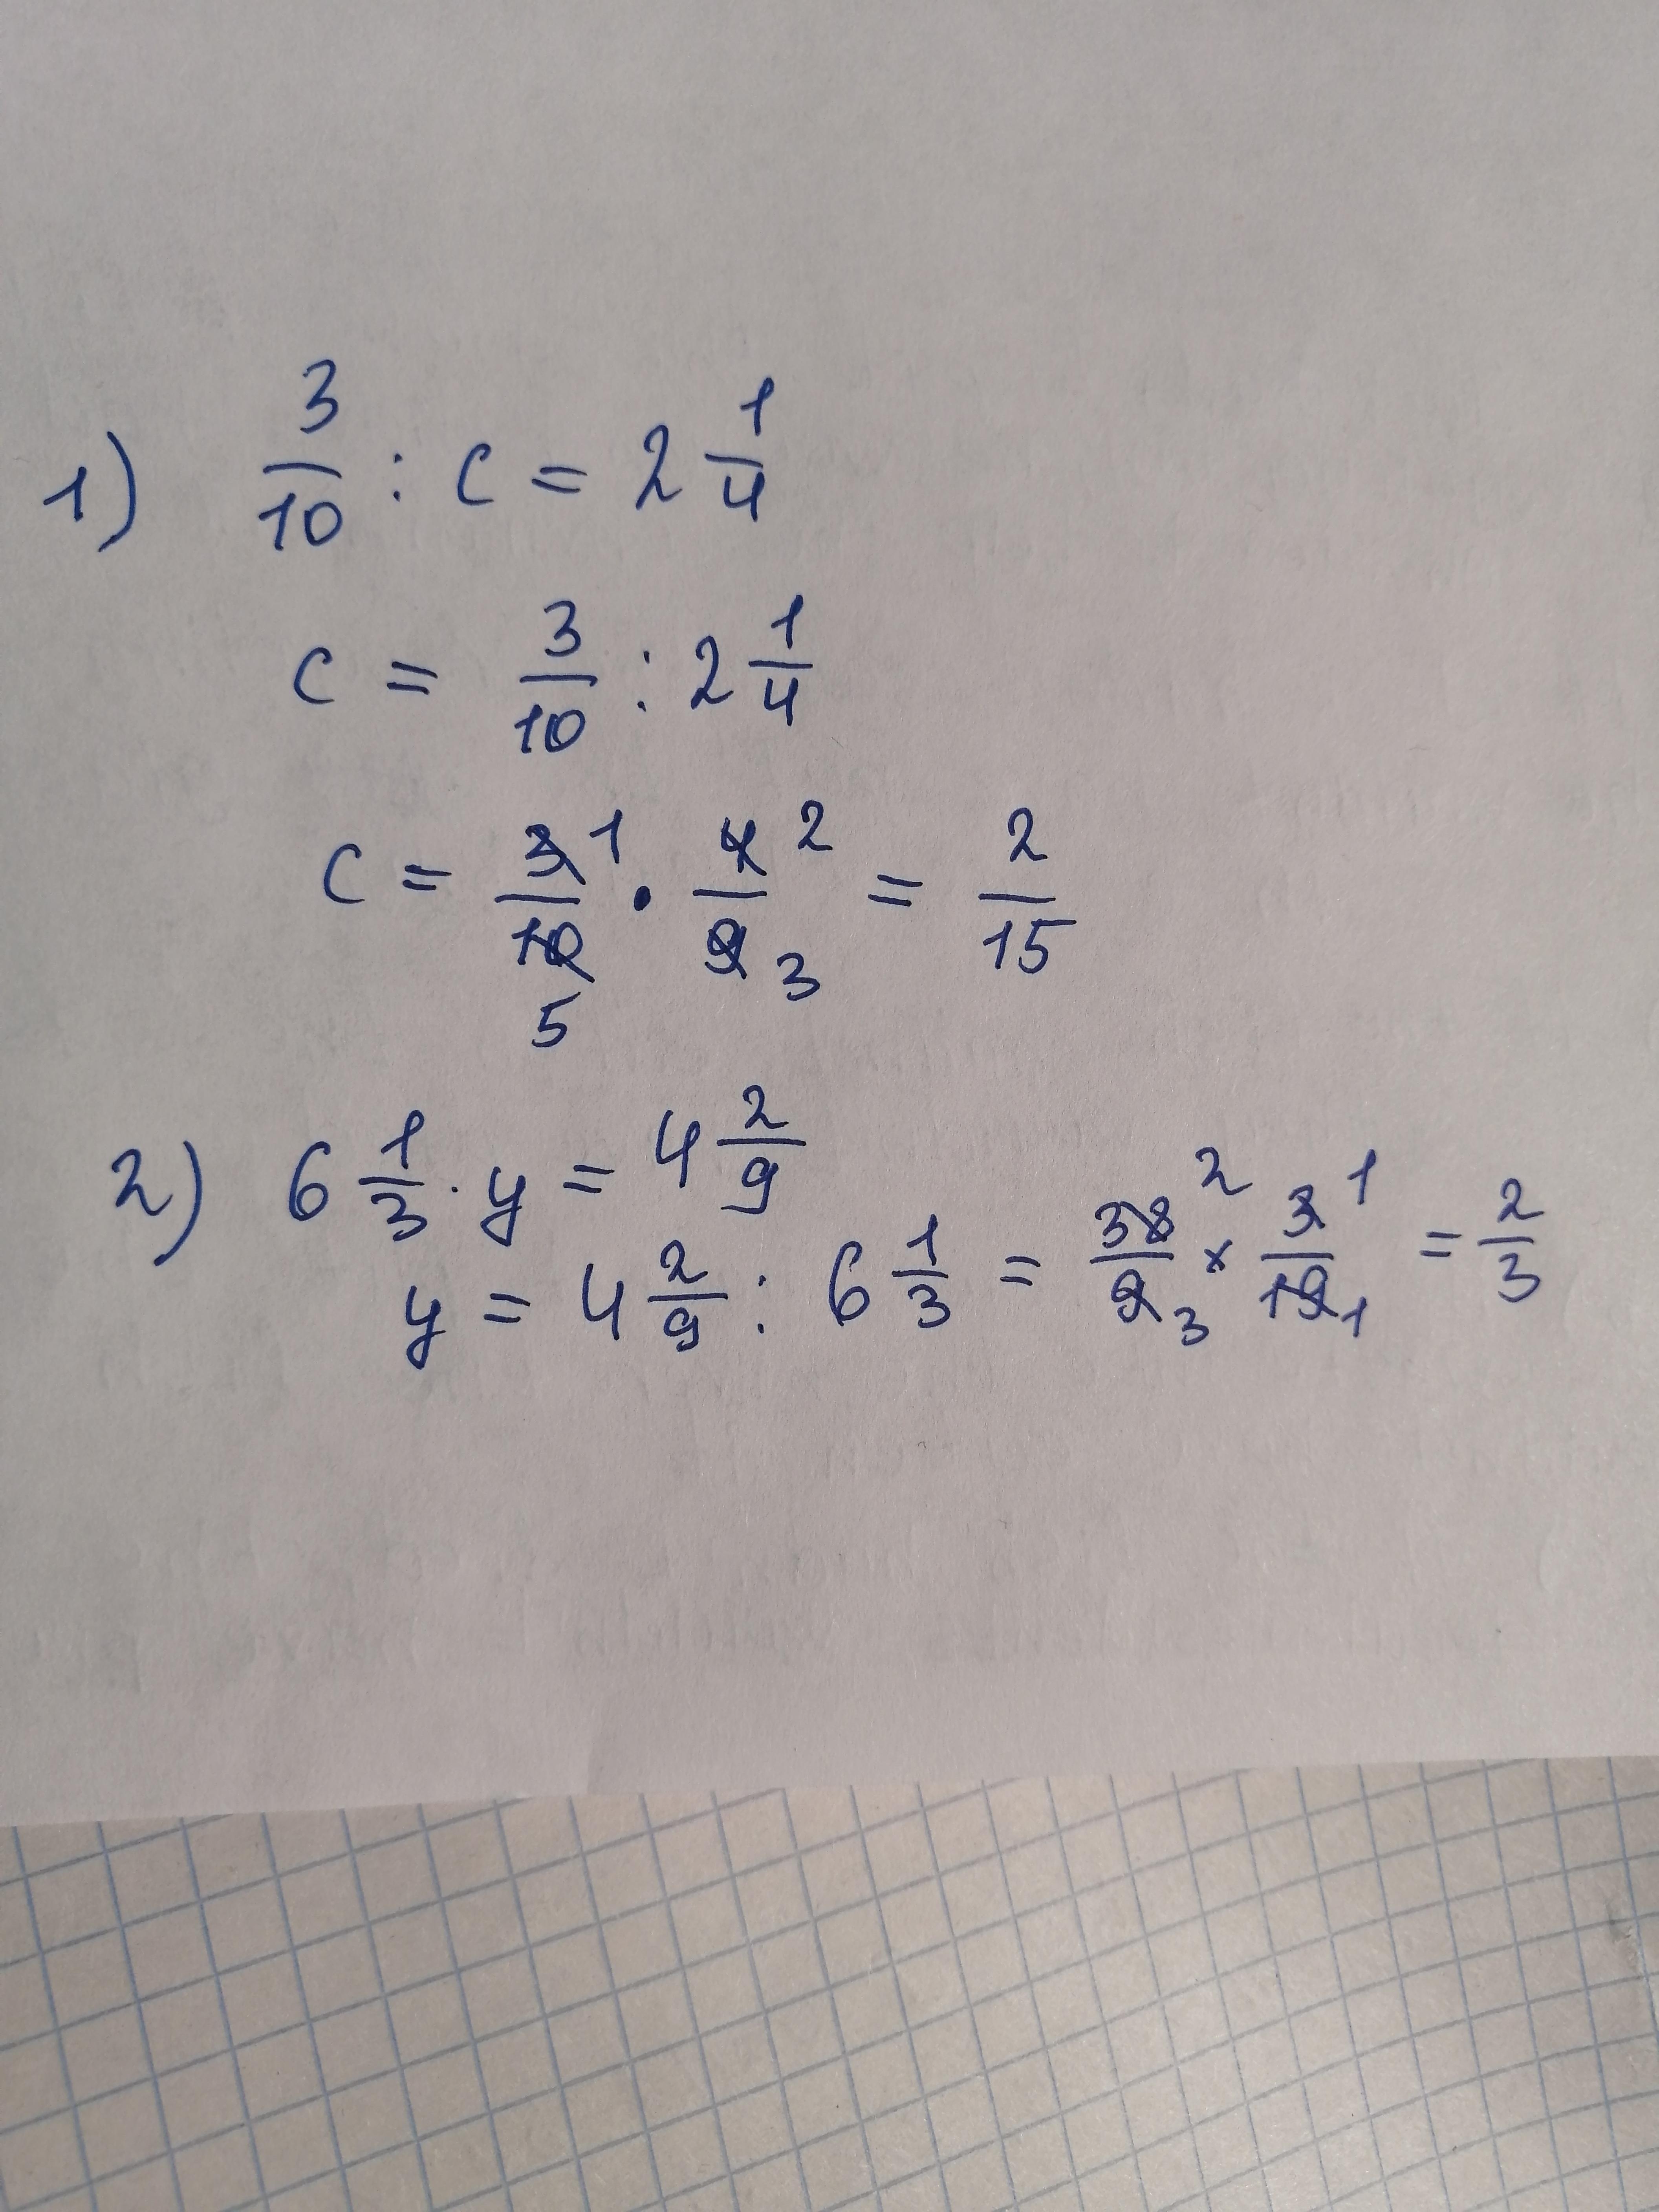 1) 3/10 : c = 2 1/4
c = 3/10 : 2 1/4
c = 3 1/10 5 · 4 2/9 3 = 2/15
2) 6 1/3 · y = 4 2/9
y = 4 2/9 : 6 1/3 = 38 2/9 3 × 3 1/19 1 = 2/3